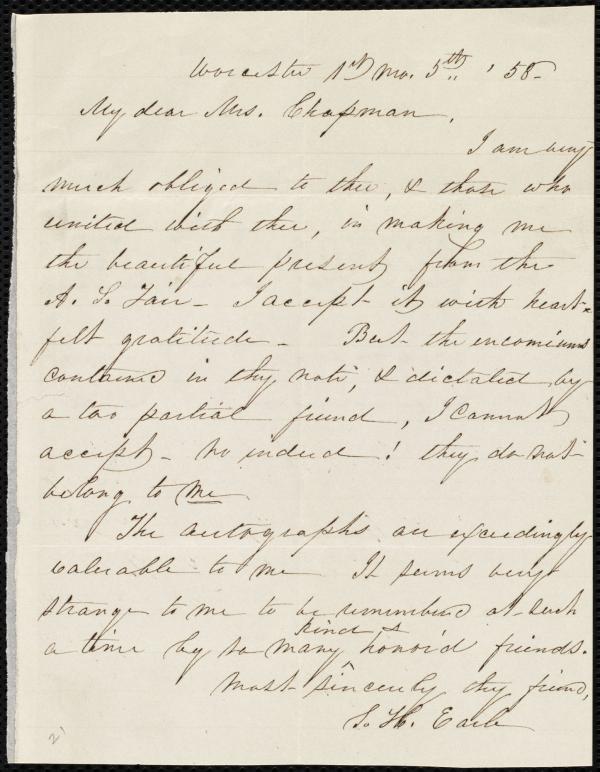 Worcester 1st mo. 5th '58-
My dear Mrs. Chapman,
I am very
much obliged to thee, & those who
united with thee, in making me
the beautiful present from the
A. S. Fair - I accept it with heart-
felt gratitude - But the encomiums
contained in thy note, & dictated by
a too partial friend, I cannot
accept - no indeed! they do not
belong to me
The autographs are exceedingly
valuable to me It seems very
strange to me to be remembered at such
kind &
a time by so many honor'd friends.
Most sincerely thy friend,
S. H. Earle
21